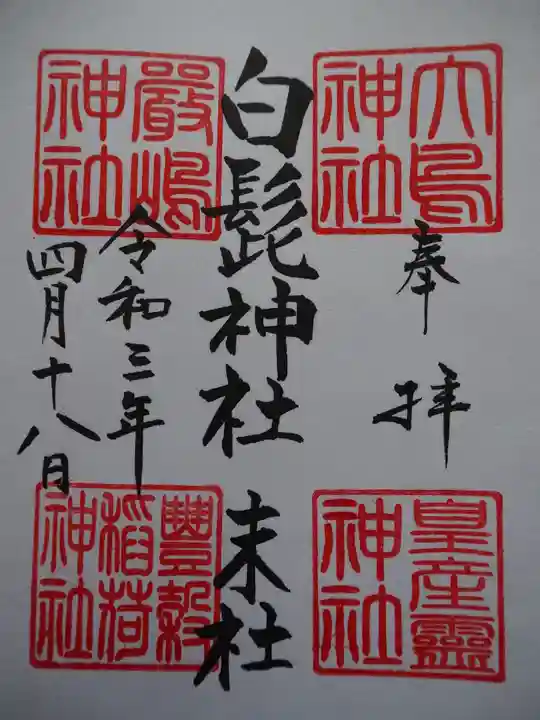 大鳥
神社
奉拝
皇産靈
神社
白髭神社 末社
嚴嶋
神社
令和三年
四月十八日
豐穀
稻荷
神社